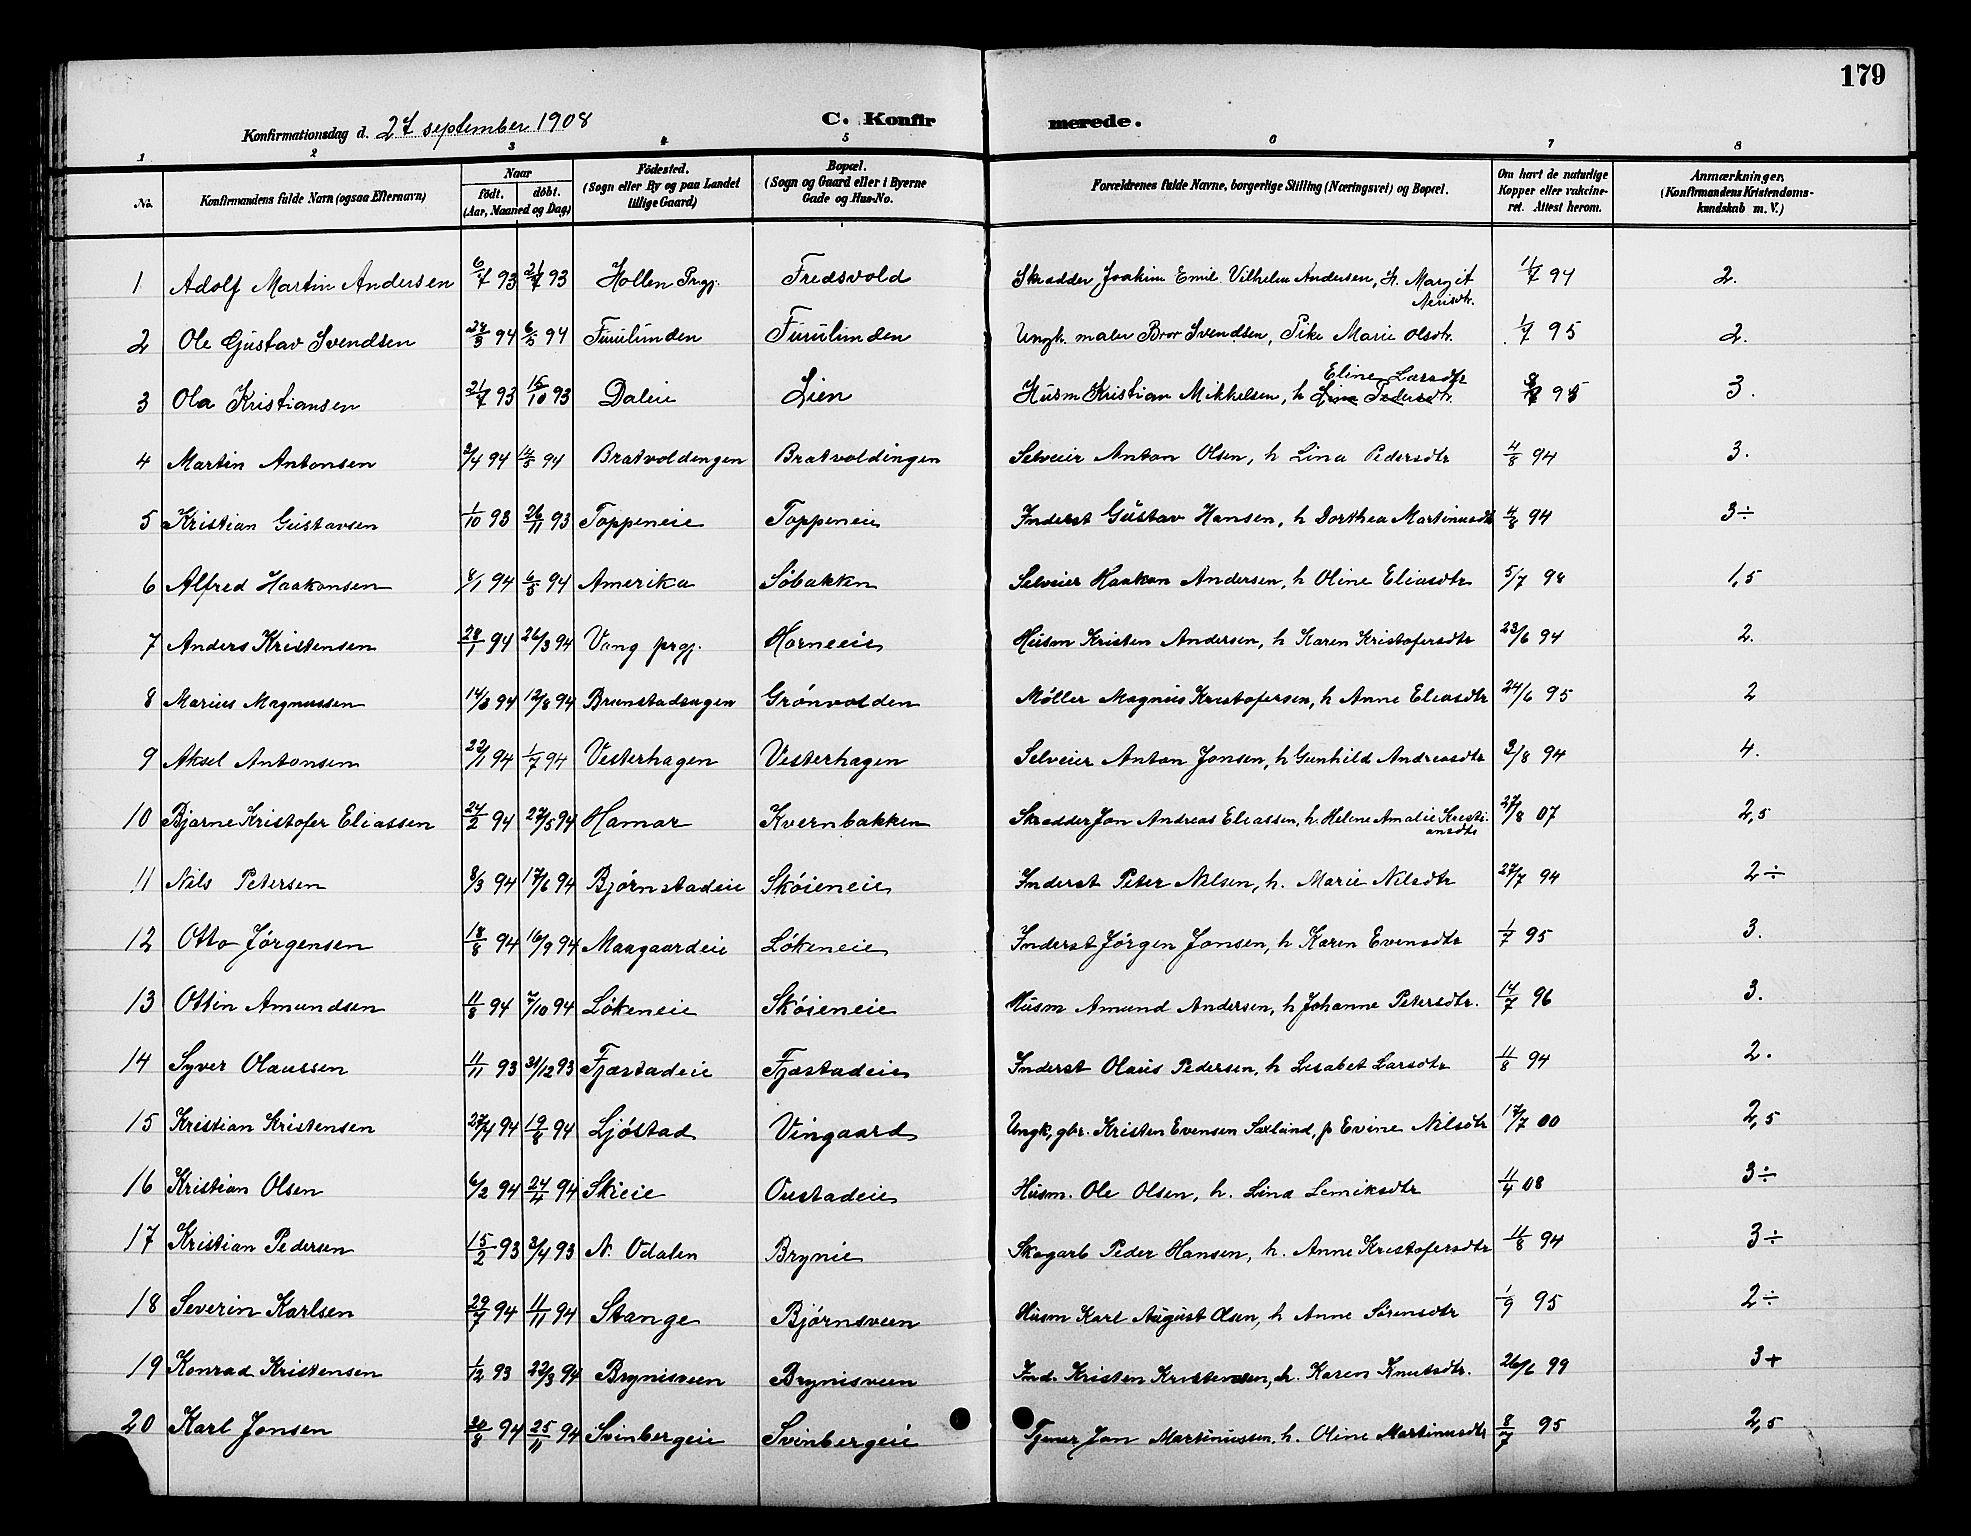 179
Konfirmationsdag d. 27 september 1908 C. Konfirmerede.
1 2 3 4 5 6 7 8
No. Konfirmandens fulde Navn (ogsaa Efternavn) Naar født. døbt. (Aar, Maaned og Dag) Fødested. (Sogn eller By og paa Landet tillige Gaard) Bopæl. (Sogn og Gaard eller i Byerne Gade og Hus-No. Forældrenes fulde Navne, borgerlige Stilling (Næringsvei) og Bopæl. Om havt de naturlige Kopper eller vakcineret. Attest herom. Anmærkninger, (Konfirmandens Kristendomskundskab m. V.)
1 Adolf Martin Andersen 6/7 93 21/7 93 Hollen Prgj. Fredsvold Skrædder Joakim Emil Vilhelm Andersen, h. Margit 11/7 94 2.
2 Ole Gustav Svendsen 24/3 94 6/5 94 Furulunden Furulunden Ungk. maler Bror Svendsen, Pike Marie Olsdtr. 1/7 95 2.
3 Ola Kristiansen 21/7 93 15/10 93 Daleie Lien Husm Kristian Mikkelsen, h Eline Larsdtr Lina Pedersdtr. 95 3.
4 Martin Antonsen 3/4 94 14/5 94 Bratvoldengen Bratvoldingen Selveier Anton Olsen, h Lina Pedersdtr 4/8 94 3.
5 Kristian Gustavsen 1/10 93 26/11 93 Toppeneie Toppeneie Inderst Gustav Hansen, h Dorthea Martinusdtr 4/8 94 3÷
6 Alfred Haakonsen 8/1 94 6/5 94 Amerika Söbakkn Selveier Haakon Andersen, h Oline Eliasdtr 5/7 98 1,5
7 Anders Kristensen 28/1 94 26/3 94 Vang prgj. Horneeie Husm Kristen Andersen, h Karen Kristofersdtr 23/6 94 2.
8 Marius Magnussen 14/3 94 12/8 94 Brunstadsagen Grönvolden Møller Magnus Kristofersen, h Anne Eliasdtr 24/6 95 2
9 Aksel Antonsen 22/1 94 1/7 94 Vesterhagen Vesterhagen Selveier Anton Jonsen, h Gunhild Andreasdtr 3/8 94 4.
10 Bjarne Kristofer Eliassen 24/2 94 27/5 94 Hamar Kvernbakken Skrædder Jon Andreas Eliassen, h. Helene Amalie Kristiansdtr 27/8 07 2,5
11 Nils Petersen 8/3 94 17/6 94 Bjørnstadeie Skóieneie Inderst Peter Nilsen, h. Marie Nilsdtr 27/7 94 2÷
12 Otto Jörgensen 18/8 94 16/9 94 Maagaardeie Lökeneie Inderst Jörgen Jonsen, h Karen Evensdtr 1/7 95 3.
13 Ottin Amundsen 11/8 94 7/10 94 Lökeneie Skóieneie Husm Amund Andersen, h Johanne Petersdtr. 14/7 96 3.
14 Syver Olaussen 11/11 93 31/12 93 Fjæstadeie Fjæstadeie Inderst Olaus Pedersen, h Lisabet Larsdtr 11/8 94 2.
15 Kristian Kristensen 27/4 94 19/8 94 Ljöstad Vingaard Ungk, gbr. Kristen Evensen Saxlund, p Evine Nilsdtr 17/7 00 2,5
16 Kristian Olsen 6/2 94 24/4 94 Skieie Oustadeie Husm. Ole Olsen, h. Lina Lemiksdtr 11/4 08 3÷
17 Kristian Pedersen 15/2 93 3/4 93 N. Odalen Brynie Skogarb Peder Hansen, h. Anne Kristofersdtr 11/8 94 3÷
18 Severin Karlsen 29/7 94 11/11 94 Stange Bjørnsveen Husm Karl August Olsen, h Anne Sørensdtr 1/9 95 2÷
19 Konrad Kristensen 1/12 93 22/3 94 Brynisveen Brynisveen Ind. Kristen Kristensen, h. Karen Knutsdtr. 26/6 99 3+
20 Karl Jonsen 30/8 94 25/11 94 Svinbergeie Svinbergeie Tjener Jon Martinussen, h. Oline Martinusdtr 8/7 95 2,5